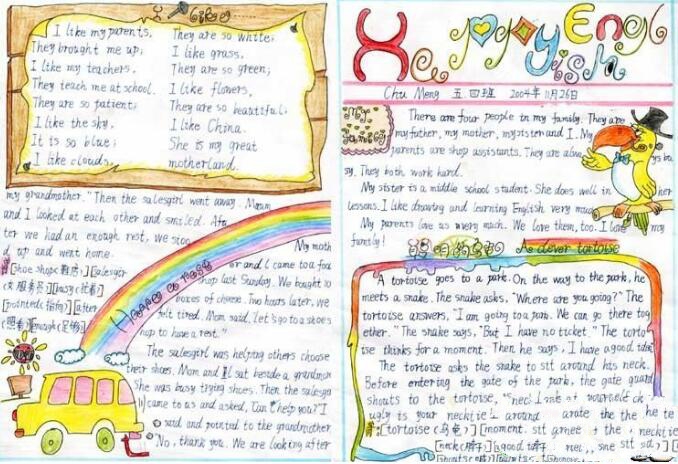 I like
I like my parents,
They brought me up;
I like my teachers,
They teach me at school.
They are so patient;
I like the sky,
It is so blue;
I like clouds,
They are so white;
I like grass,
They are so green;
I like flowers,
They are so beautiful;
I like China.
She is my great
motherland.
Have a rest
My moth
er and I came to a foo
shop last Sunday. We bought 10
boxes of cheese. Two hours later, we
felt tired. Mom said, let's go to a shoes
shop to have a rest."
The salesgirl was helping others choose
their shoes. Mom and I sat beside a grandmom
She was busy trying shoes. Then the salesgi
came to us and asked, Can I help you? I
said and pointed to the grandmother
No, thank you. We are looking after
my grandmother." Then the salesgirl went away. Mom
and I looked at each other and smiled. Af
ter we had an enough rest, we stoo
d up and went home.
Happy English
Chu Meng 五四班 2004年11月26日
My Family
There are four people in my family. They are
my father, my mother, my sister and I. My
parents are shop assistants. They are alwa ys bu
sy. They both work hard.
My sister is a middle school student. She does well in her
lessons. I like drawing and learning English very much.
My parents love us very much. We love them, too. I love my
family!
聪明的乌龟 A clever tortoise
A tortoise goes to a park. On the way to the park, he
meets a snake. The snake asks, "Where are you going?" The
tortoise answers, "I am going to a park. We can go there tog
ether." The snake says, "But I have no ticket." The torto
ise thinks for a moment. Then he says, I have a good idea
The tortoise asks the snake to sit around his neck.
Before entering the gate of the park, the gate guard
shouts to the tortoise,
ugly is your necktie
[tortoise(乌龟)][moment
[neck(脖子)][good